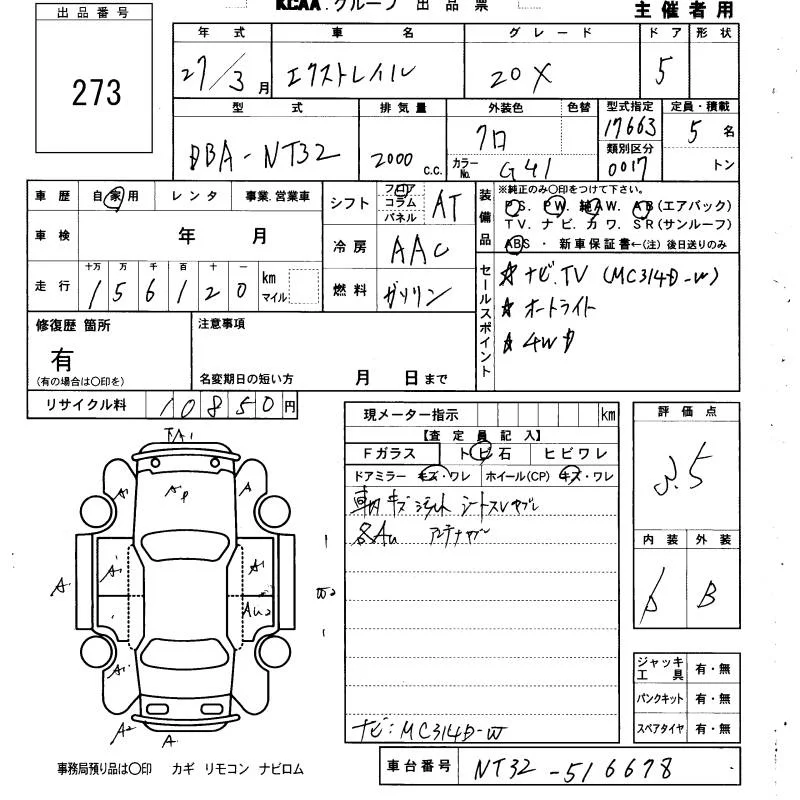 KCAA.グループ 出品票
主催者用
出品番号
273
年式 車名 グレード ドア 形状
27/3月 エクストレイル 20X 5
型式 排気量 外装色 色替 型式指定 定員・積載
DBA-NT32 2000 c.c. クロ 17663 5名
類別区分
カラーNo. G41 0017 トン
車歴 自家用 レンタ 事業.営業車
シフト フロア コラム パネル AT
装備品 ※純正のみ〇印をつけて下さい。
PS. PW. 純AW. AB(エアバック)
TV. ナビ. カワ. SR(サンルーフ)
ABS ・ 新車保証書←(注) 後日送りのみ
車検 年 月
冷房 AAC
走行 十万 万 千 百 十 一 km マイル
156120
燃料 ガソリン
セールスポイント
☆ナビ.TV (MC314D-W)
☆オートライト
☆4WD
修復歴 箇所
有
(有の場合は〇印を)
注意事項
名変期日の短い方 月 日まで
リサイクル料 10850円
現メーター指示 km
【査定員記入】
Fガラス トビ石 ヒビワレ
ドアミラー キズ・ワレ ホイール(CP) キズ・ワレ
車内キズ
各AU
ナビ:MC314D-W
評価点
3.5
内装 外装
B
ジャッキ工具 有・無
パンクキット 有・無
スペアタイヤ 有・無
下A1
A1
AP
A1
A1
A
AU2
W2
A1
A2
A
事務局預り品は〇印 カギ リモコン ナビロム
車台番号 NT32-516678